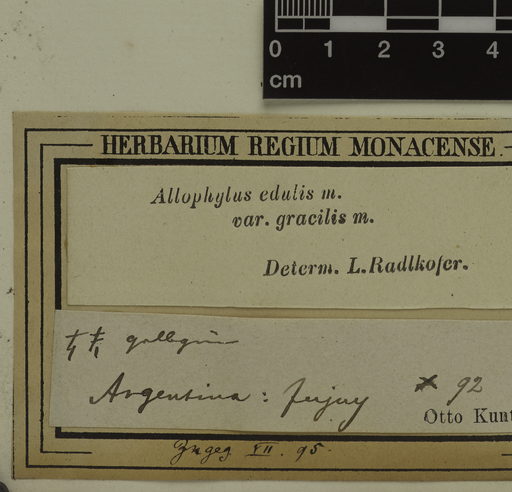 0 1 2 3 4
cm
HERBARIUM REGIUM MONACENSE.
Allophylus edulis m.
var. gracilis m.
Determ. L. Radlkofer.
Argentina: Jujuy 92
Otto Kunt
VII. 95.